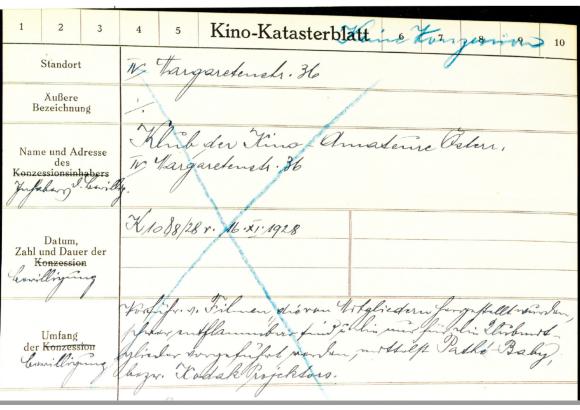 1 2 3 4 5 Kino-Katasterblatt 6 7 8 9 10
Keine Konzession
Standort
IV Margaretenstr. 36
Äußere
Bezeichnung
./.
Name und Adresse
des
Konzessionsinhabers
Inhabers d. Bewillig.
Klub der Kino-Amateure Österr.
IV Margaretenstr. 36
Datum,
Zahl und Dauer der
Konzession
Bewilligung
K 1088/28 v. 16. XI. 1928
Umfang
der Konzession
Bewilligung
Vorführ. v. Filmen, die von Mitgliedern hergestellt wurden,
schwer entflammbar sind u. die nur für die Klubmit-
glieder vorgeführt werden, mittelst Pathé-Baby,
bezw. Kodak Projektors.